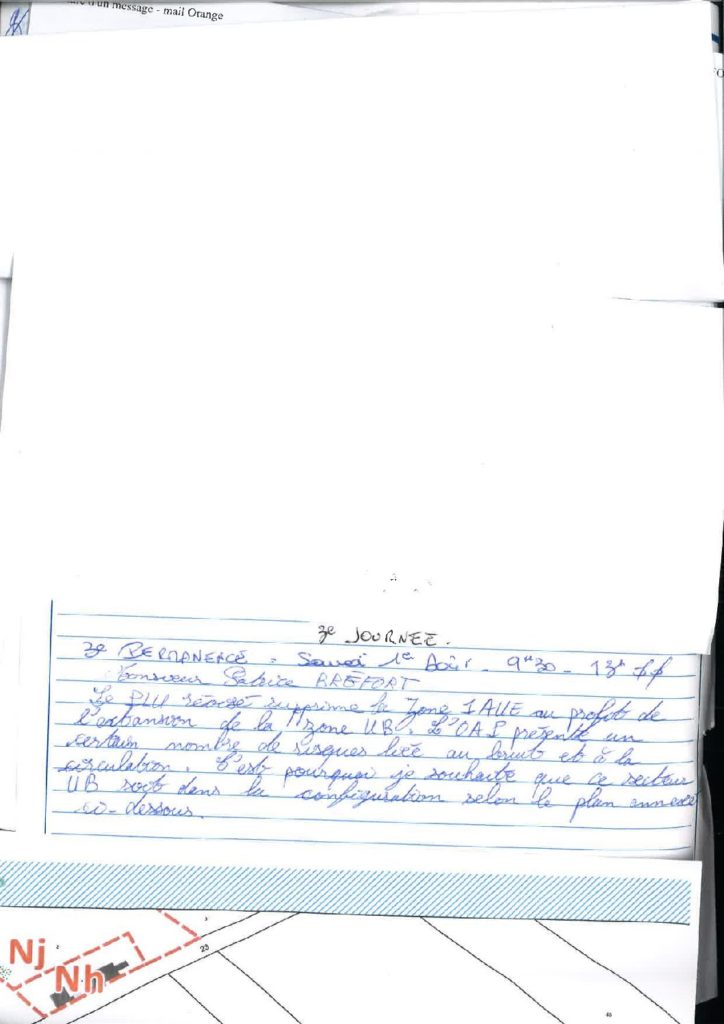 d'un message - mail Orange
3e JOURNEE.
3e PERMANENCE. Samedi 1er Août - 9h30 - 13h
Monsieur Patrice BREFORT
Le PLU révisé supprime la Zone 1AUE au profit de
l'expansion de la zone UB. L'OAP présente un
certain nombre de risques liée au bruit et à la
circulation. C'est pourquoi je souhaite que ce secteur
UB soit dans la configuration selon le plan annexé
ci-dessous.
Nj
Nh